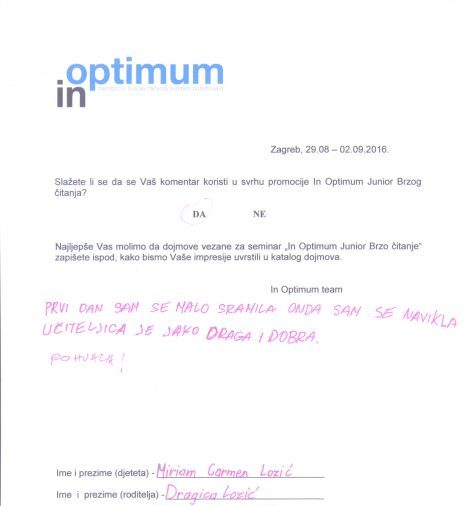 optimum
in
Zagreb, 29.08 – 02.09.2016.
Slažete li se da se Vaš komentar koristi u svrhu promocije In Optimum Junior Brzog
čitanja?
DA NE
Najljepše Vas molimo da dojmove vezane za seminar „In Optimum Junior Brzo čitanje“
zapišete ispod, kako bismo Vaše impresije uvrstili u katalog dojmova.
In Optimum team
PRVI DAN SAM SE MALO SRAMILA ONDA SAM SE NAVIKLA
UČITELJICA JE JAKO DRAGA I DOBRA.
POHVALA!
Ime i prezime (djeteta) - Miriam Carmen Lozić
Ime i prezime (roditelja) - Dragica Lozić